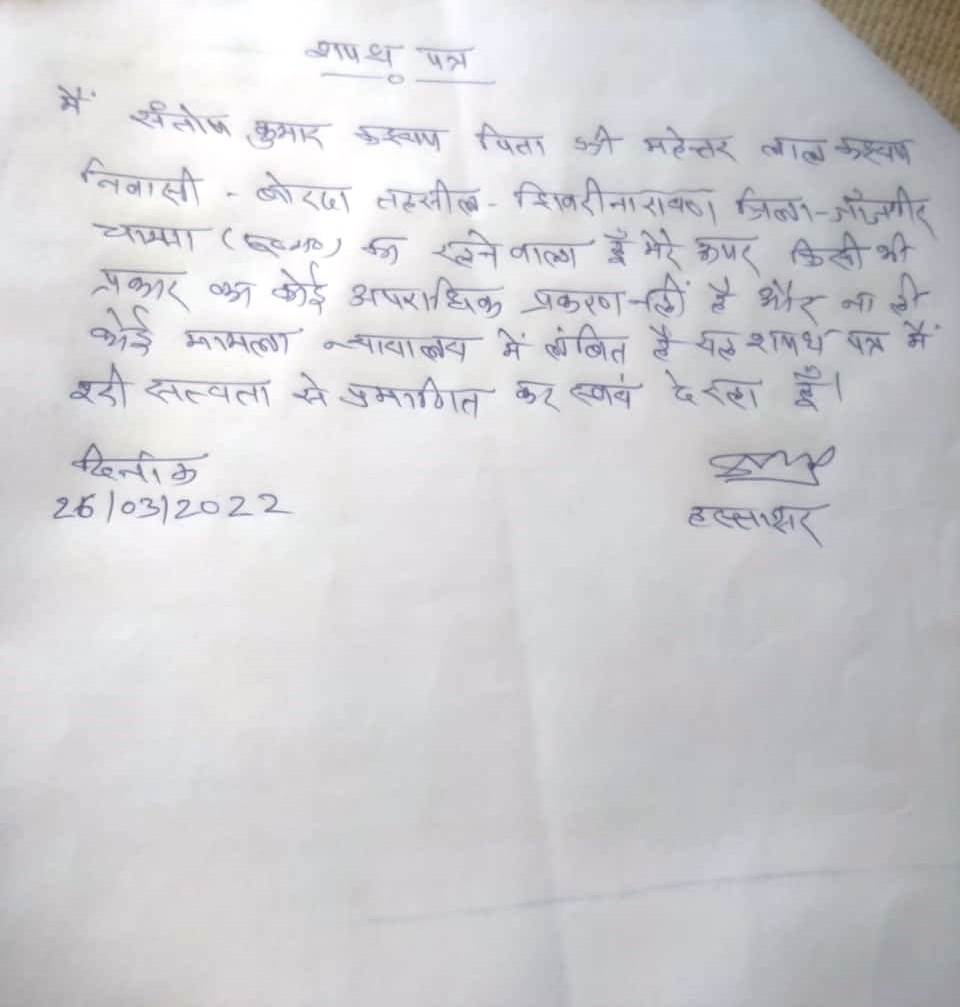 शपथ पत्र
मैं संतोष कुमार कश्यप पिता श्री महेत्तर लाल कश्यप
निवासी - बोरदा तहसील - शिवरीनारायण जिला - जांजगीर
चाम्पा (छ०ग०) का रहने वाला हूँ मेरे ऊपर किसी भी
प्रकार का कोई अपराधिक प्रकरण नहीं है और ना ही
कोई मामला न्यायालय में लंबित है यह शपथ पत्र मैं
सत्यता से प्रमाणित कर स्वयं दे रहा हूँ।
दिनांक
26/03/2022
हस्ताक्षर